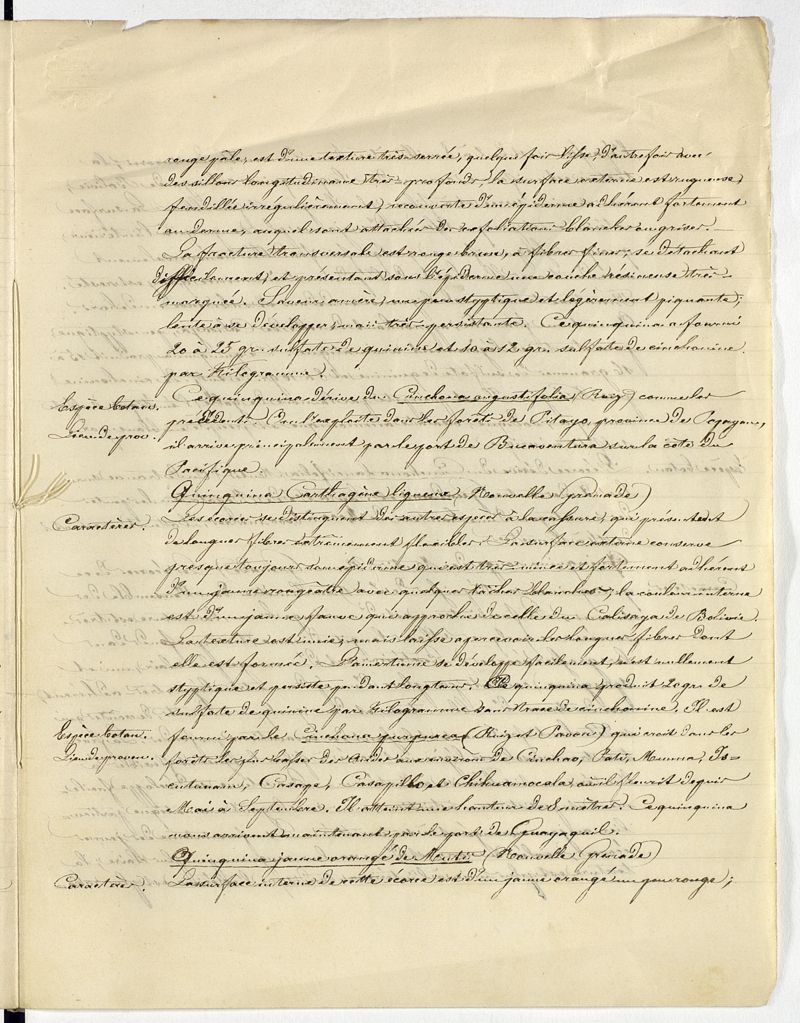 rouge pâle, est d'une texture très-serrée, quelque fois lisse, d'autrefois avec
des sillons longitudinaux très-profonds, la surface externe est rugueuse,
fendillée irrégulièrement, recouverte d'un épiderme adhérant fortement
au derme, auquel sont attachés des exfoliations blanches ou grises.
La fracture transversale est rouge brune, à fibres fines, se détachant
difficilement, et présentant sous l'épiderme une couche résineuse très-
marquée. Saveur amère, un peu styptique et légèrement piquante,
lente à se développer, mais très-persistante. Ce quinquina a fourni
20 à 25 gr. sulfate de quinine et 10 à 12 gr. sulfate de cinchonine
par Kilogramme.
Espèce botan. Ce quinquina dérive du Cinchona angustifolia (Ruiz) comme les
Lieu de prov. précédents. On l'exploite dans les forêts de Pitayo, province de Popayan,
il arrive principalement par le port de Buenaventura sur la côte du
Pacifique.
Quinquina Carthagène ligneux (Nouvelle Grenade)
Caractères. Les écorces se distinguent des autres espèces à la cassure, qui présentent
de longues fibres extrêmement flexibles. La surface externe conserve
presque toujours son épiderme qui est très-mince et fortement adhérent
d'un jaune rougeâtre avec quelques taches blanches, la couleur interne
est d'un jaune fauve qui approche de celle du Calisaya de Bolivie.
La texture est unie, mais laisse apercevoir les longues fibres dont
elle est formée. L'amertume se développe facilement, n'est nullement
styptique et persiste pendant longtems. Ce quinquina produit 20 gr. de
sulfate de quinine par Kilogramme sans trace de cinchonine. Il est
Espèce botan. fourni par le Cinchona purpurea (Ruiz et Pavon) qui croît dans les
Lieu de proven. forêts les plus basses des Andes aux environs de Cinchao, Pati, Munna,
Casape, Casapillo et Chihuamocala, où il fleurit depuis
Mai à Septembre. Il atteint une hauteur de 8 mètres. Ce quinquina
nous arrivent maintenant par le port de Guayaquil.
Quinquina jaune orangé de Mutis (Nouvelle Grenade)
Caractères. La surface interne de cette écorce est d'un jaune orangé un peu rouge;